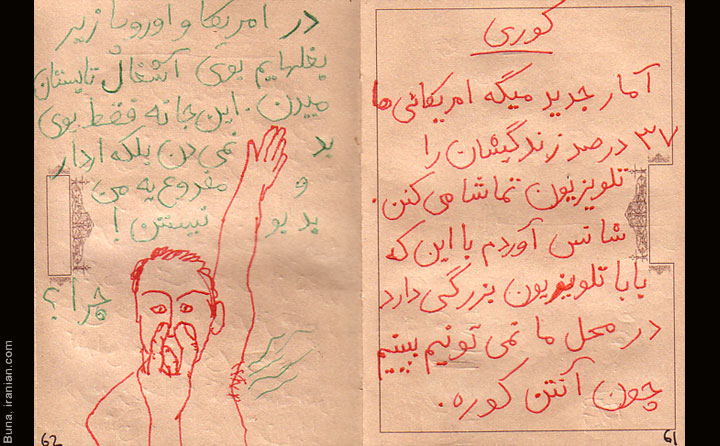 کوری
آمار جدید میگه امریکائی ها
۳۷ درصد زندگیشان را
تلویزیون تماشا می کنن.
شانس آوردم با این که
بابا تلویزیون بزرگی دارد
در محل ما نمی تونیم ببینیم
چون آنتن کوره.
61
در امریکا و اوروپا زیر
بغلهایم بوی آشغال تابستان
میدن. این جا نه فقط بوی
بد نمی دن بلکه ادار
و مفدوع یه من
بد بو نیستن!
چرا؟
62
Buna, iranian.com